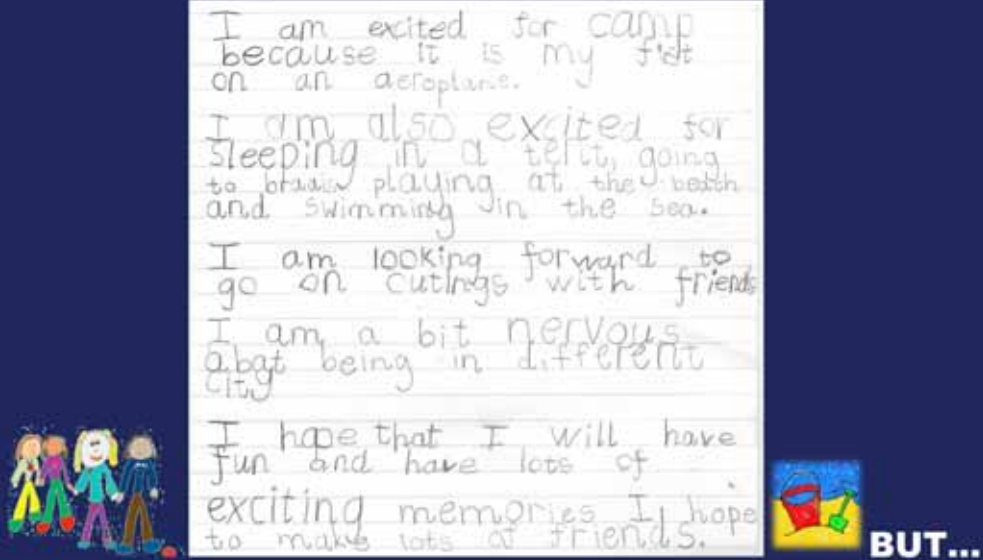 I am excited for camp
because it is my fist
on an aeroplane.
I am also excited for
sleeping in a tent, going
to playing at the beath
and swimming in the sea.
I am looking forward to
go on cutings with friends
I am a bit nervous
abat being in different
city
I hope that I will have
fun and have lots of
exciting memories I hope
to make lots of friends.
BUT...